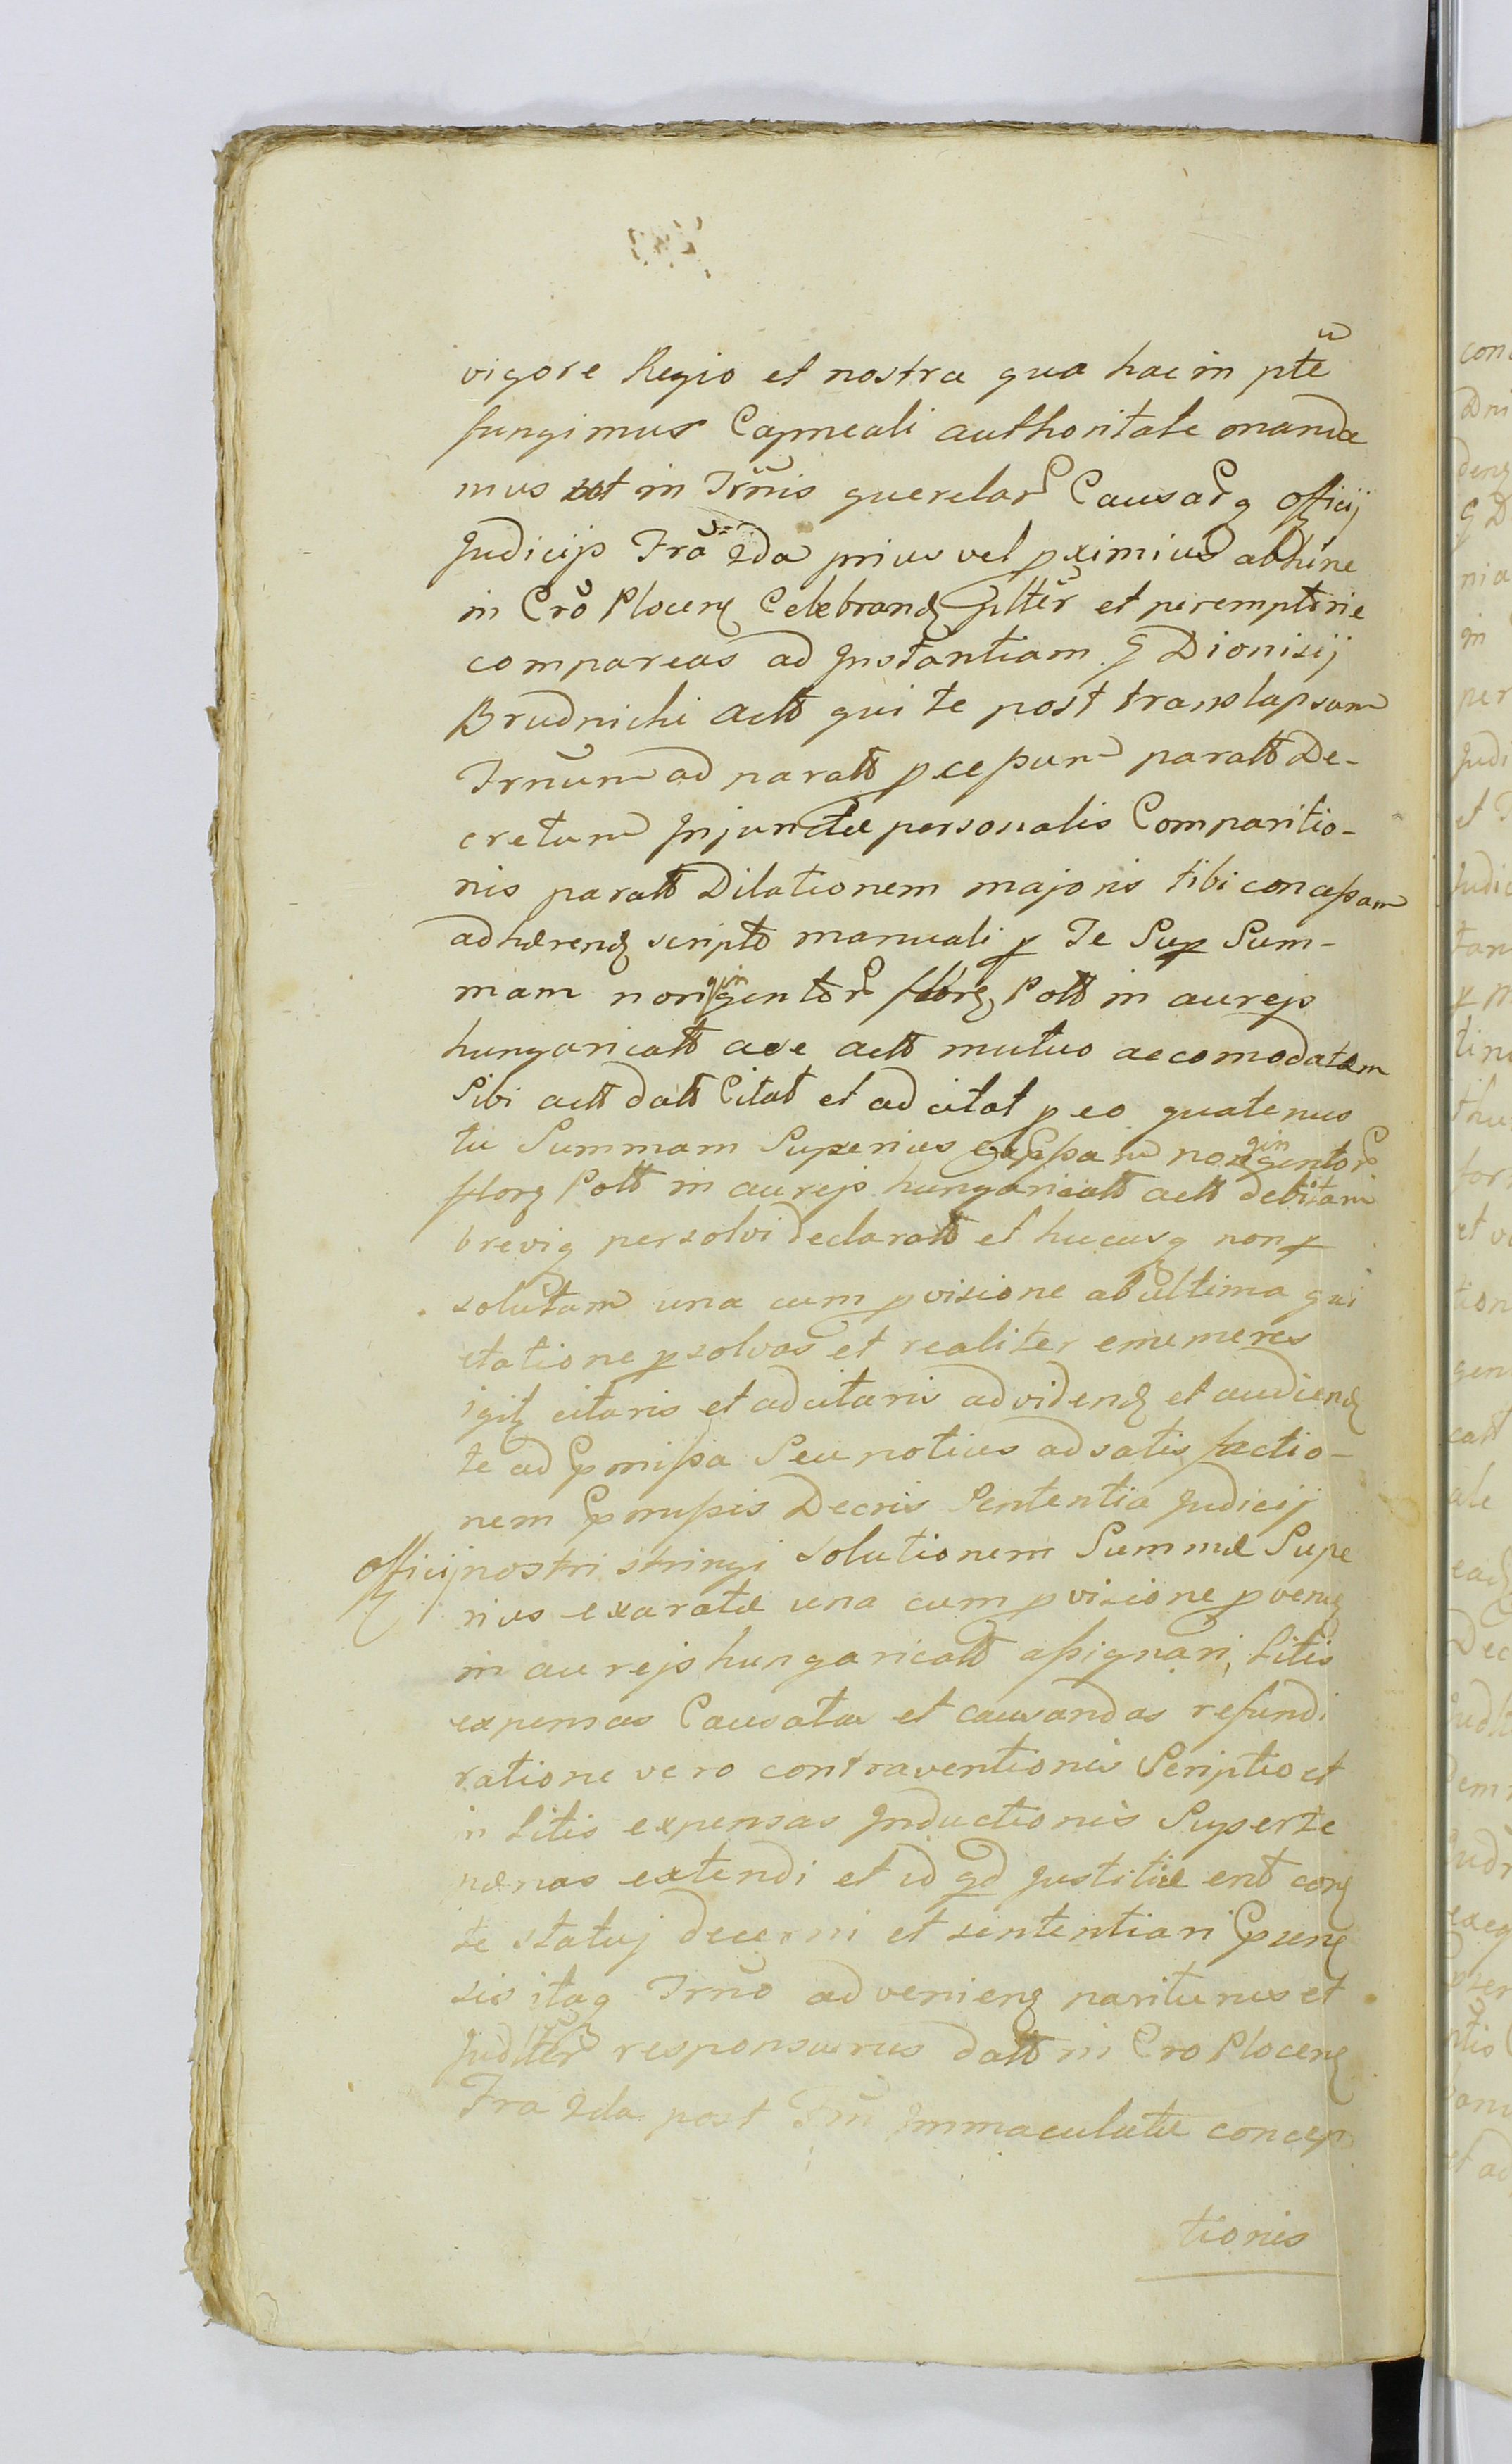 vigore Regio et nostra qua hac in pte
fungimur Capneali authoritate manda
mus ut in Trnis querelar Causarq officij
Judicijs Fra 2da prius vel pximius abhinc
in Cro Plocen Celebrand Jltter et peremptorie
compareas ad Instantiam G Dionisij
Brudnicki actt qui te post translapsum
Trnum ad paratt pcessum paratt De-
cretum Injunctæ personalis Comparitio-
nis paratt Dilationem majoris tibi concessam
adhærend scripto manuali p Te Sup Sum-
mam nongingentor flor Poltt in aurejs
hungaricatt ære actt mutuo accomodatam
Sibi actt datt Citat et ad citat p eo quatenus
tu Summam Superius expssam nongingentor
flor Poltt in aurejs hungaricatt actt debitam
breviq persolvi declaratt et hucusq non p
solutam una cum pvisione ab ultima qui
etatione psolvas et realiter enumeres
igit citaris et adcitaris ad vidend et audiend
te ad pmissa Seu potius ad satis factio-
nem pmissis Decris Sententia Judicij
officij nostri stringi Solutionem Summæ Supe
rius exaratæ una cum pvisione pven
in aurejs hungaricatt assignari, litis
expensas Causatas et causandas refundi
ratione vero contraventionis Scripto et
in litis expensas Inductionis Super te
pænas extendi et id qd Justitiæ erit con
te statuj decerni et sententiari psen
sis itaq Trno ad venien pariturus et
Judlter responsurus datt in Cro Plocen
Fra 2da post Fm Immaculatæ concep
tionis